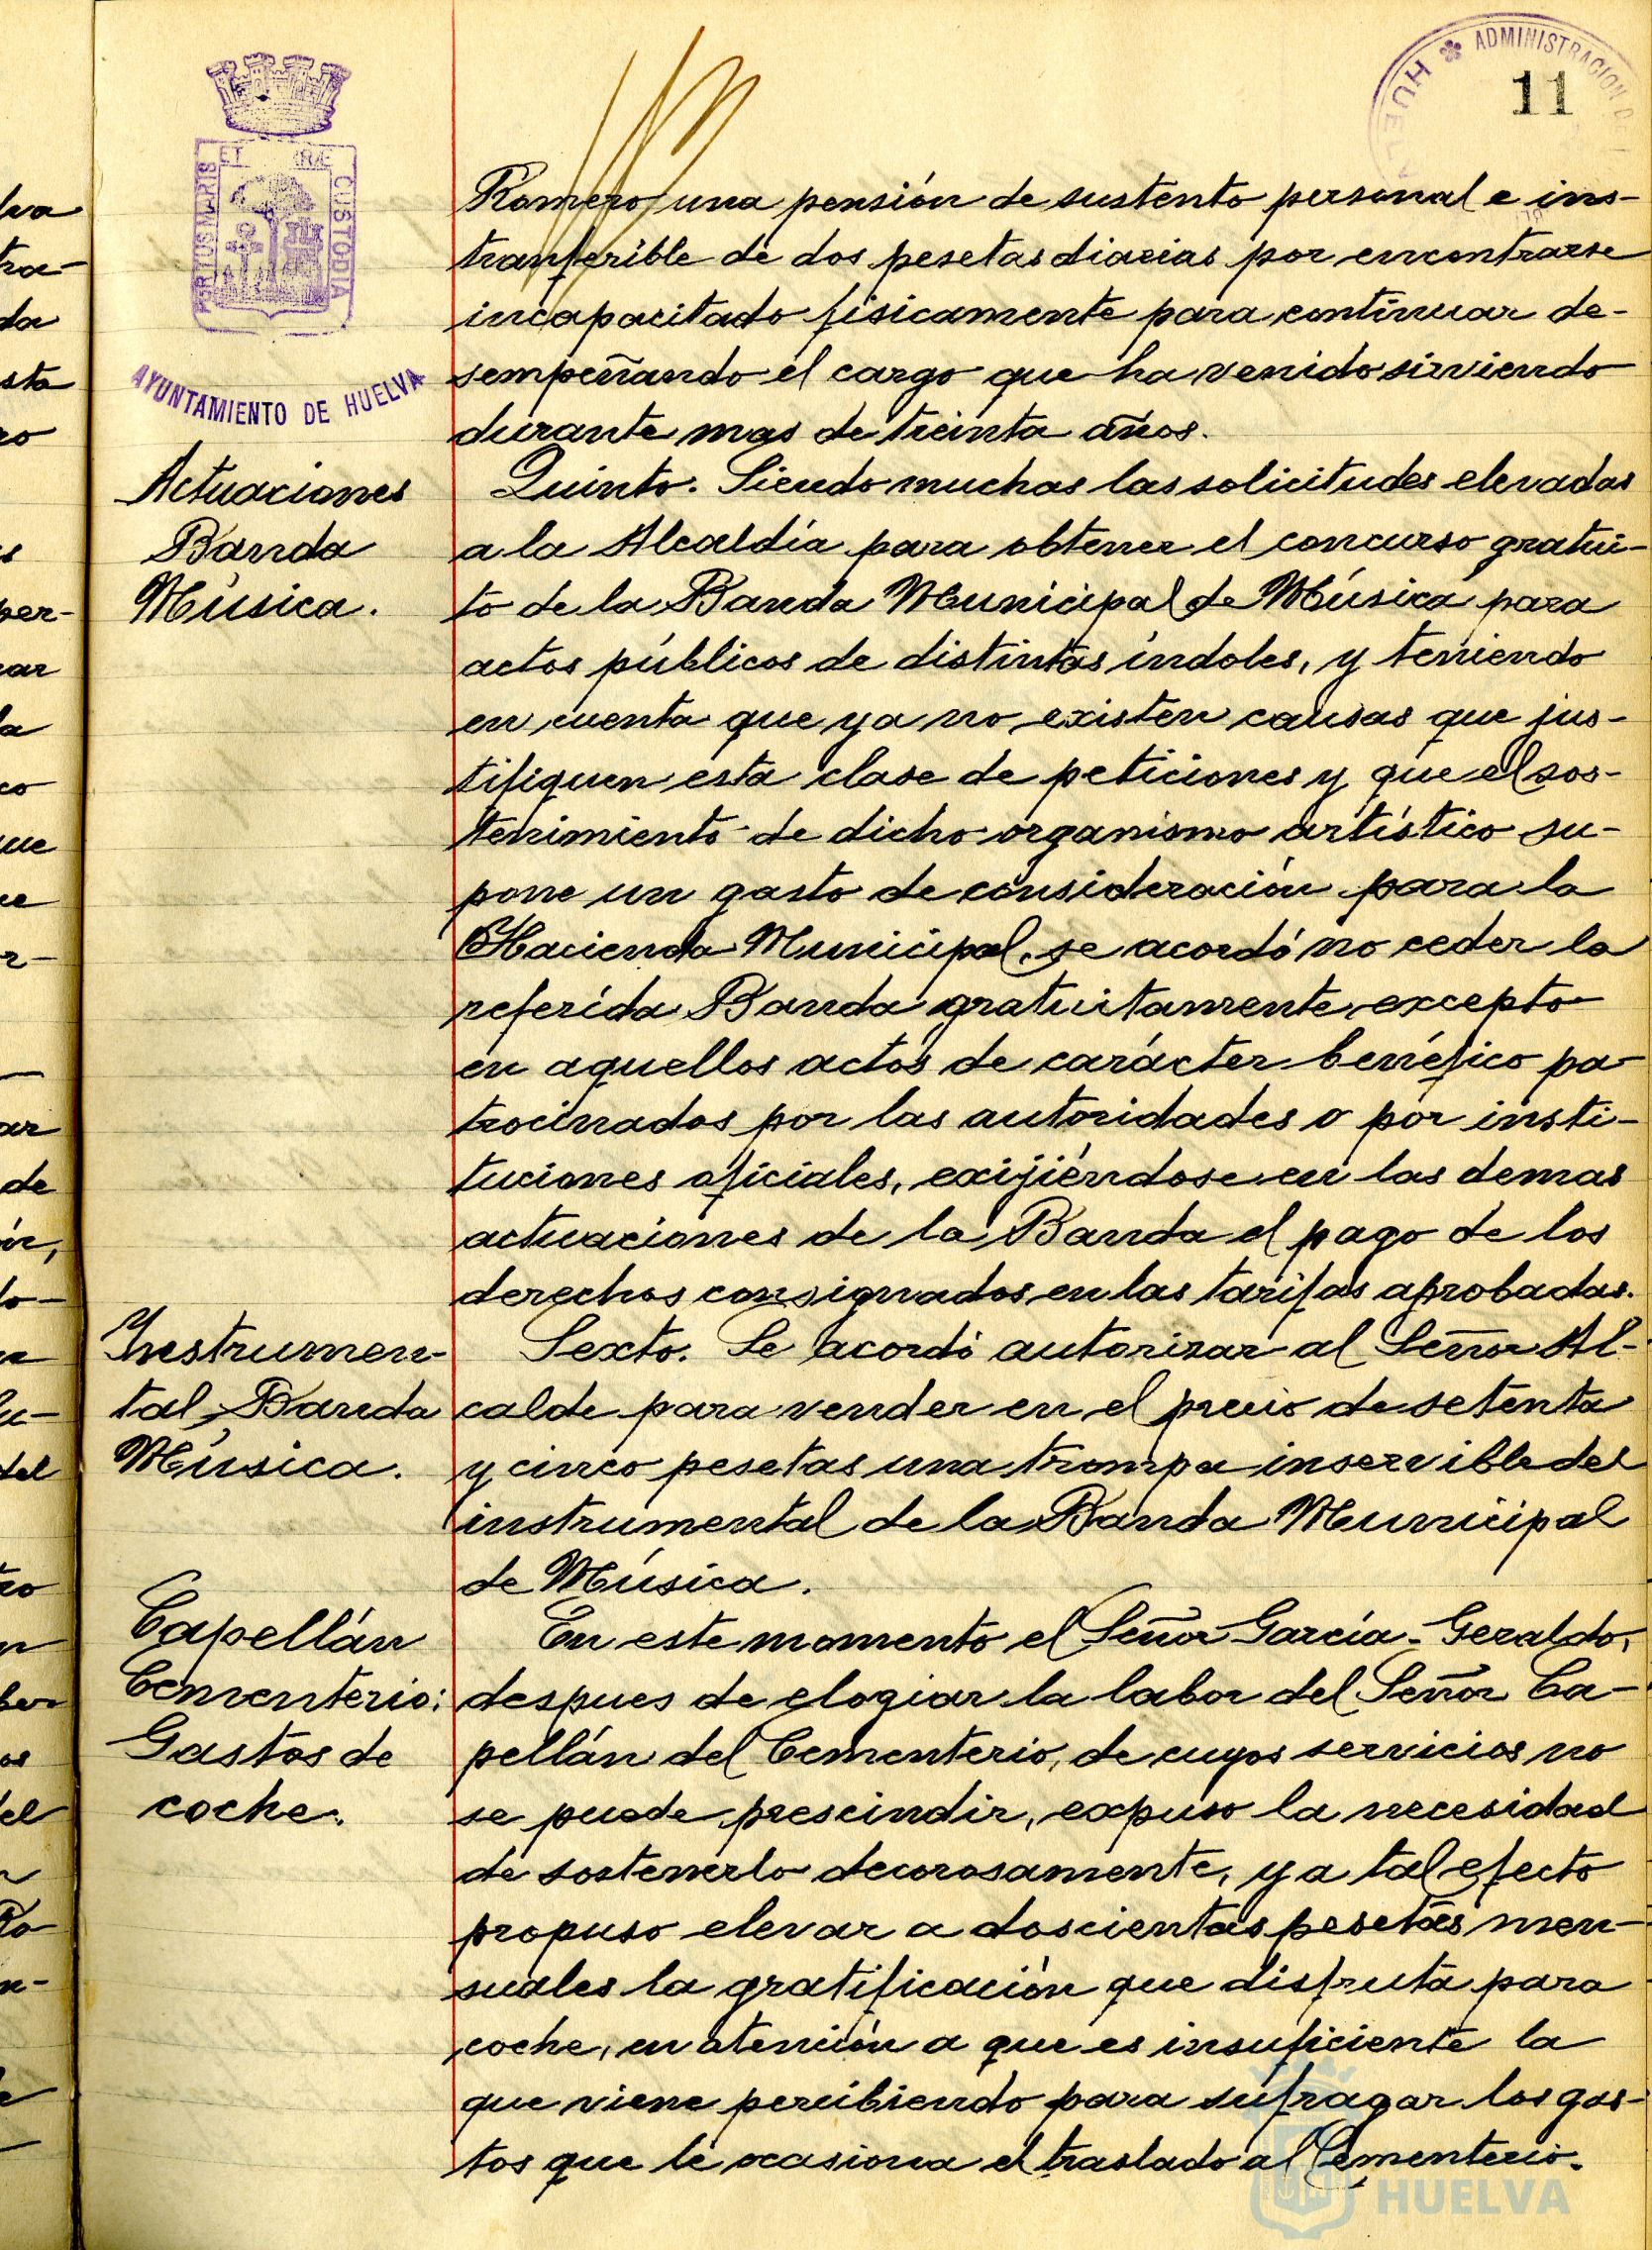 ADMINISTRACION DE
HUELVA
11
PORTUS MARIS
ET
RÆ
CUSTODIA
AYUNTAMIENTO DE HUELVA
Romero una pensión de sustento personal e ins-
tranferible de dos pesetas diarias por encontrarse
incapacitado fisicamente para continuar de-
sempeñando el cargo que ha venido sirviendo
durante mas de treinta años.
Actuaciones
Banda
Música.
Quinto. Siendo muchas las solicitudes elevadas
a la Alcaldía para obtener el concurso gratui-
to de la Banda Municipal de Música para
actos públicos de distintas índoles, y teniendo
en cuenta que ya no existen causas que jus-
tifiquen esta clase de peticiones y que el sos-
tenimiento de dicho organismo artístico su-
pone un gasto de consideración para la
Hacienda Municipal, se acordó no ceder la
referida Banda gratuitamente excepto
en aquellos actos de carácter benéfico pa-
trocinados por las autoridades o por insti-
tuciones oficiales, exijiéndose en las demas
actuaciones de la Banda el pago de los
derechos consignados en las tarifas aprobadas.
Instrumen-
tal Banda
Música.
Sexto. Se acordó autorizar al Señor Al-
calde para vender en el precio de setenta
y cinco pesetas una trompa inservible del
instrumental de la Banda Municipal
de Música.
Capellán
Cementerio:
Gastos de
coche.
En este momento el Señor García-Geraldo,
despues de elogiar la labor del Señor Ca-
pellán del Cementerio, de cuyos servicios no
se puede prescindir, expuso la necesidad
de sostenerlo decorosamente, y a tal efecto
propuso elevar a doscientas pesetas men-
suales la gratificación que disfruta para
coche, en atención a que es insuficiente la
que viene percibiendo para sufragar los gas-
tos que le ocasiona el traslado al Cementerio.
HUELVA